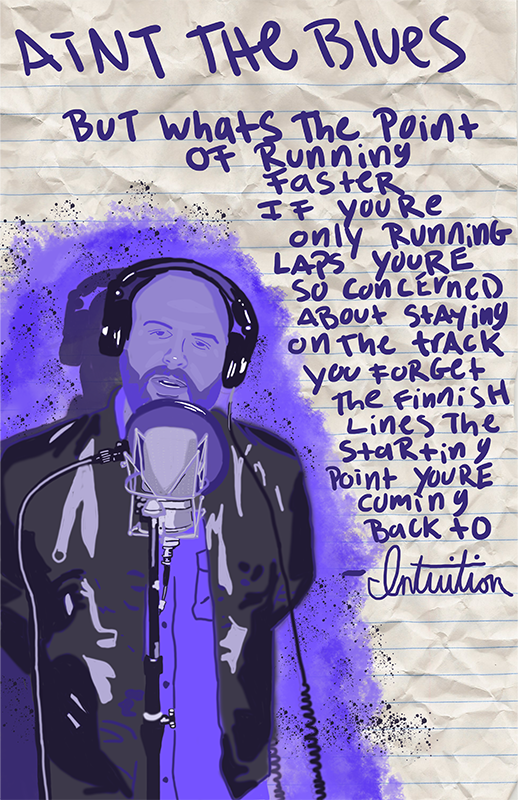 AINT THE BLUES
BUT WHATS THE POINT
OF RUNNING
FASTER
IF YOU'RE
ONLY RUNNING
LAPS YOURE
SO CONCERNED
ABOUT STAYING
ON THE TRACK
YOU FORGET
THE FINNISH
LINES THE
STARTING
POINT YOURE
COMING
BACK TO
- Intuition